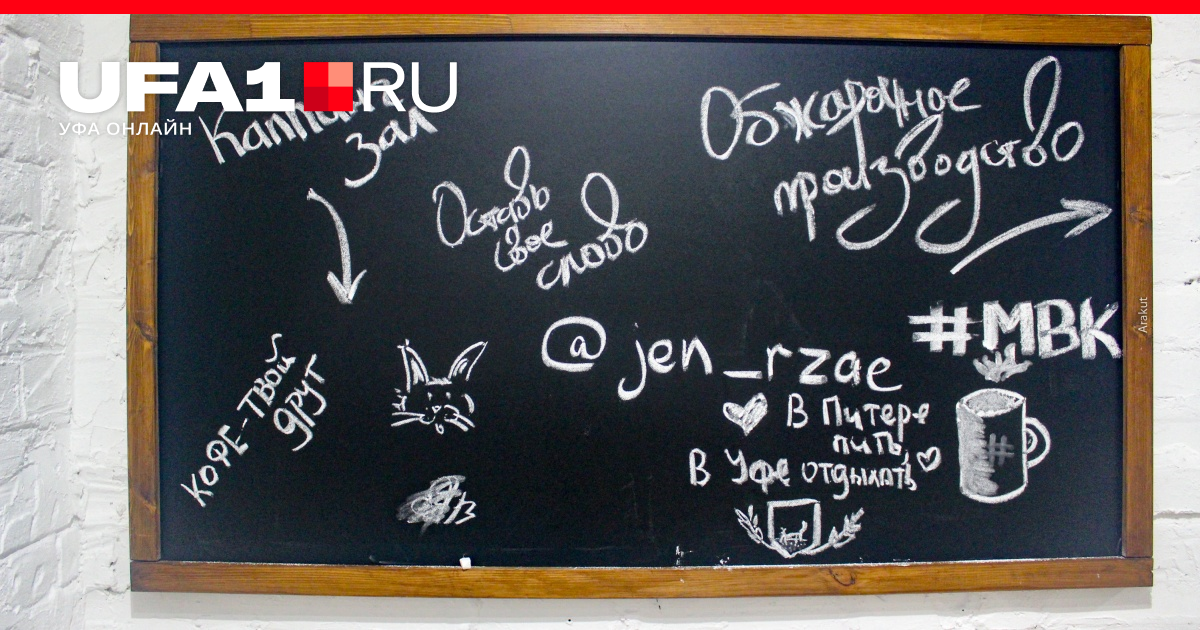 UFA1 RU
УФА ОНЛАЙН
Каппинг
зал
Обжарочное
производство
Оставь
свое
слово
#МВК
@jen_rzae
КОФЕ-ТВОЙ
друг
В Питере
пить,
В Уфе отдыхать
#
Arakut